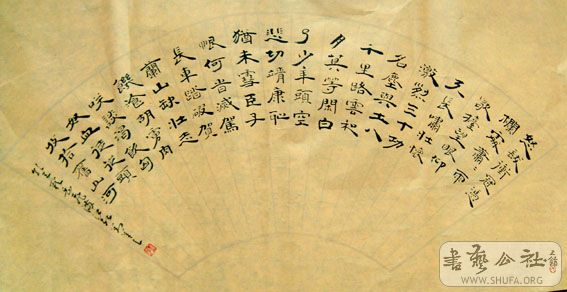 怒髮衝冠憑
欄處瀟瀟雨
歇抬望眼仰
天長嘯壯懷
激烈三十功
名塵與土八
千里路雲和
月莫等閒白
了少年頭空
悲切靖康恥
猶未雪臣子
恨何昔滅駕
長車踏破賀
蘭山缺壯志
飢餐胡虜肉
笑談渴飲匈
奴血待從頭
收拾舊山河
書藝公社
WWW.SHUFA.ORG